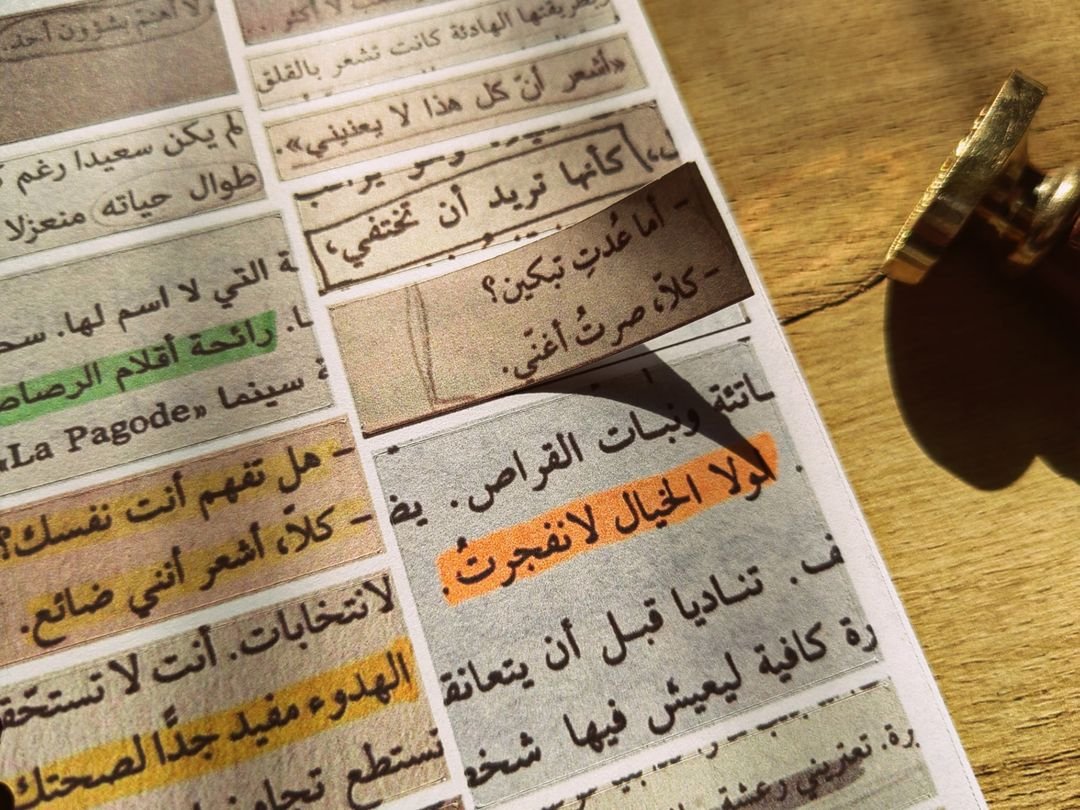 بطريقتها الهادئة كانت تشعر بالقلق
«أشعر أنّ كل هذا لا يعنيني».
كأنها تريد أن تختفي،
- أما عُدتِ تبكين؟
- كلاّ، صرتُ أغنّي.
ونبات القراص. يض
لولا الخيال لانفجرتُ.
ف. تناديا قبل أن يتعانقا
رة كافية ليعيش فيها شخص
رة. تعتريني رعشة
لا أهتم بشؤون أحد.
لم يكن سعيدا رغم
طوال حياته منعزلا
ة التي لا اسم لها. سح
ا. رائحة أقلام الرصاص
ة سينما «La Pagode»
- هل تفهم أنت نفسك؟
- كلاّ، أشعر أنني ضائع.
لانتخابات. أنت لا تستحق
الهدوء مفيد جدًا لصحتك
تستطع